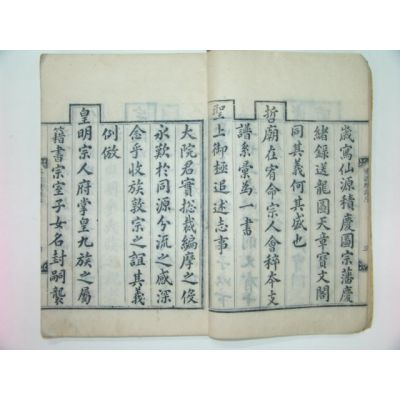 歲寫仙源積慶圖宗藩慶
緒錄送龍圖天章寶文閣
同其義何其盛也
哲廟在宥命宗人會稡本支
譜系彙為一書
聖上御極追述志事
大院君實摠裁編摩之役
永歎於同源分流之感深
念乎收族敦宗之誼其義
例倣
皇明宗人府掌皇九族之屬
籍書宗室子女名封嗣襲